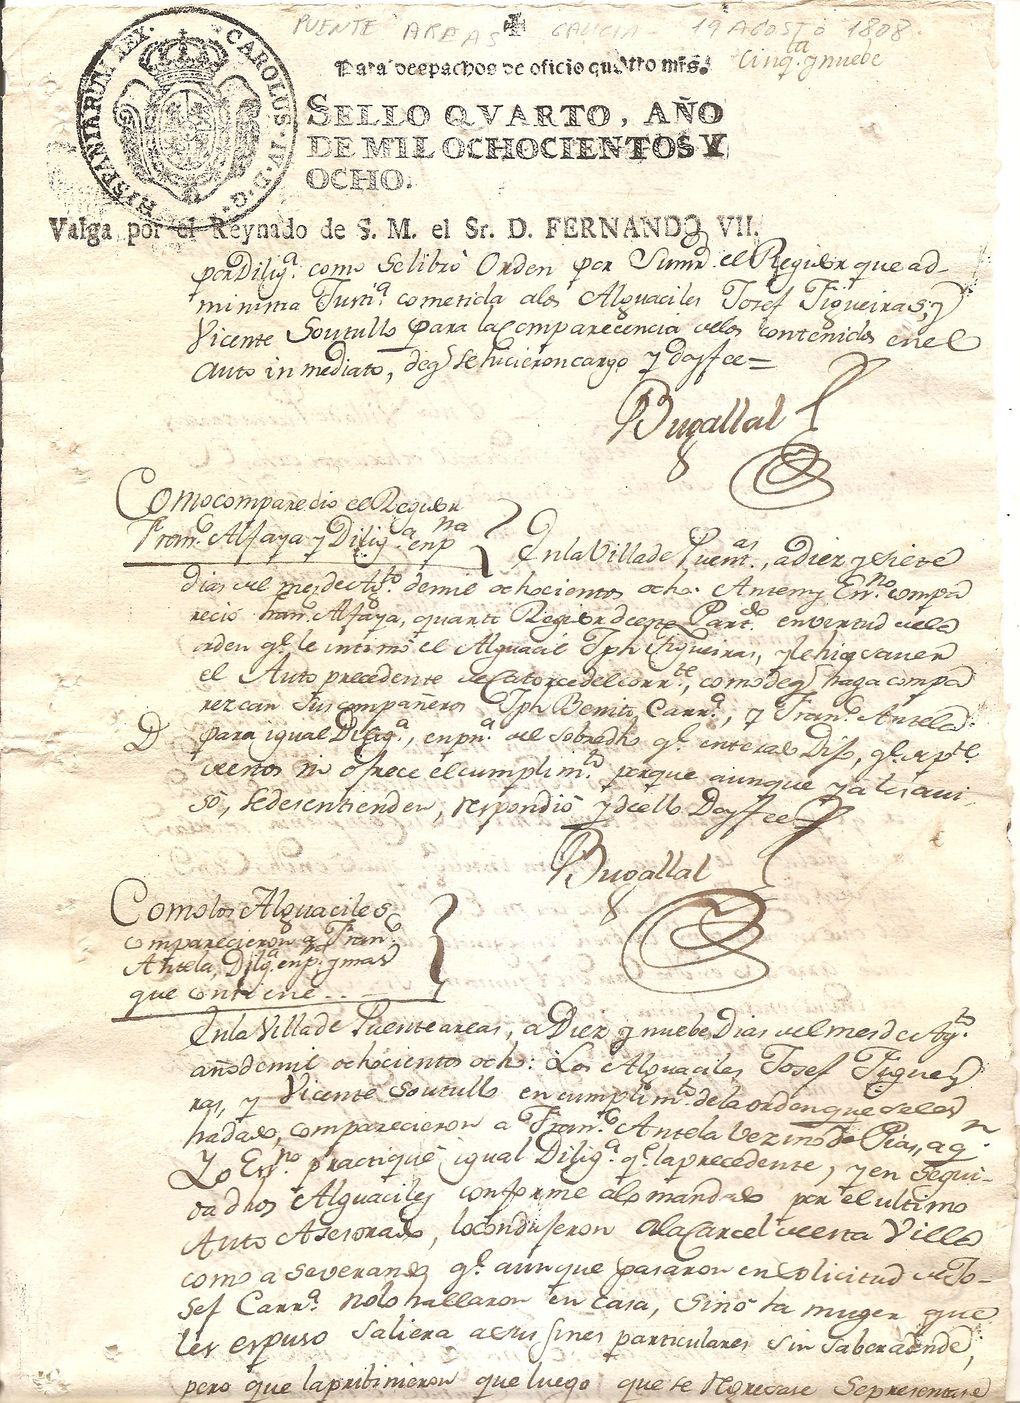 PUENTE AREAS GALICIA 19 AGOSTO 1808.
Cinqta y nuebe
Para despachos de oficio quatro mrs.
HISPANIARUM REX. CAROLUS IV D G
SELLO QVARTO, AÑO
DE MIL OCHOCIENTOS Y
OCHO.
Valga por el Reynado de S. M. el Sr. D. FERNANDO VII.
por Diliga. como se libró Orden por Sumd. el Regidor que ad-
ministra Justa. cometida alos Alguaciles Josef Figueiras, y
Vicente Soutullo para la comparecencia delos contenidos en el
Auto inmediato, de q se hicieron cargo y doy fee =
Bugallal
Como comparecio el Regidor
Franco. Alfaya y Diliga. en pna
En la Villa de Puentas., a diez y siete
dias del mes de Agto. de mil ochocientos ocho. Ante my Enno. compa
reció Franco. Alfaya, quarto Regidor de este Partdo. en virtud dela
orden qe. le intimó el Alguacil Jph Figueiras, y le hiqe saver
el Auto precedente de Catorce del corrte., como de q haga compa
rezcan sus compañeros Jph Benito Carra., y Franco. Antela
para igual Diliga., en pna. del sobredho qe. enterado Dijo, qe. rspte.
D
menos no ofrece el cumplimto. porque aunque ya les avi-
só, se desentienden, respondió y de ello Doy fee
Bugallal
Como los Alguaciles
comparecieron a Franco.
Antela, Diliga. en pna. y mas
que contiene
En la Villa de Puenteareas, a Diez y nuebe Dias del mes de Agto.
año de mil ochocientos ocho: Los Alguaciles Josef Figuei
ras, y Vicente Soutullo en cumplimto. de la orden que se les
ha dado, comparecieron a Franco. Antela Vezino de Pias, a qn.
Yo Enno. practiqué igual Diliga. qe. la precedente, y en segui-
da dhos Alguaciles conforme alo mandado por el ultimo
Auto Asesorado, lo condujeron ala Carcel de esta Villa
como a Saverando qe. aunque pasaron en solicitud de Jo-
sef Carra. no lo hallaron en casa, sino ta muger que
les espuso saliera a sus fines particulares sin saber adonde,
pero que la pribinieron que luego que se regresase se presentase